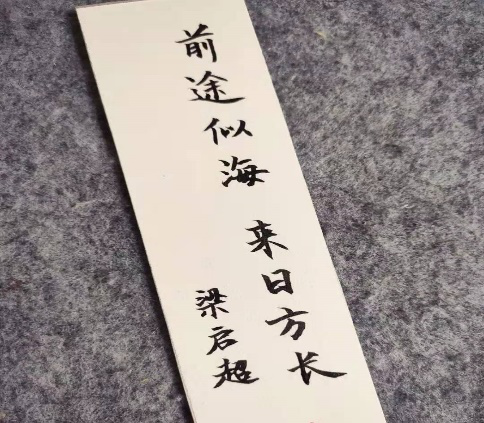 前途似海 来日方长
梁启超